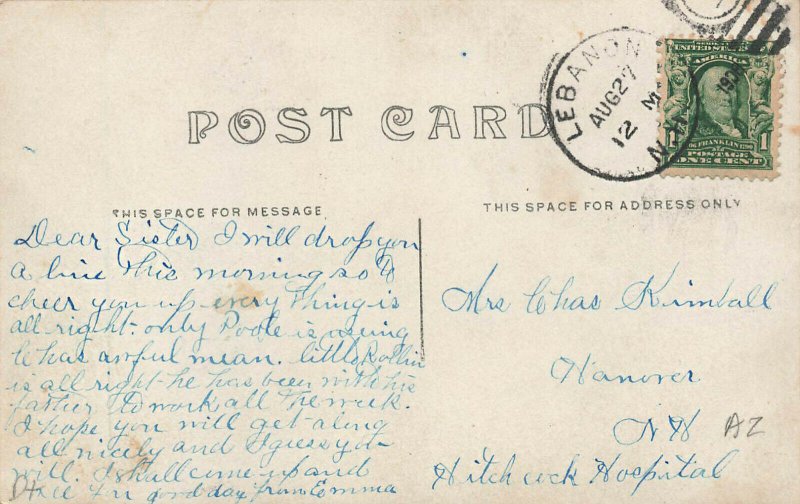 POST CARD
LEBANON
N.H.
AUG 27
12 M
190
SERIES 1902
UNITED STATES OF
AMERICA
1706 FRANKLIN 1790
1 POSTAGE 1
ONE CENT
THIS SPACE FOR MESSAGE
THIS SPACE FOR ADDRESS ONLY
Dear Sister I will drop you
a line this morning so to
cheer you up every thing is
all right. only Poole is using
Chas awful mean. little Rollin
is all right he has been with his
father to work all the week.
I hope you will get along
all nicely and I guess you
will. I shall come up and
see good day from Emma
Mrs Chas Kimball
Hanover
N H
Hitchcock Hospital
AZ